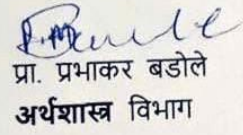 प्रा. प्रभाकर बडोले
अर्थशास्त्र विभाग